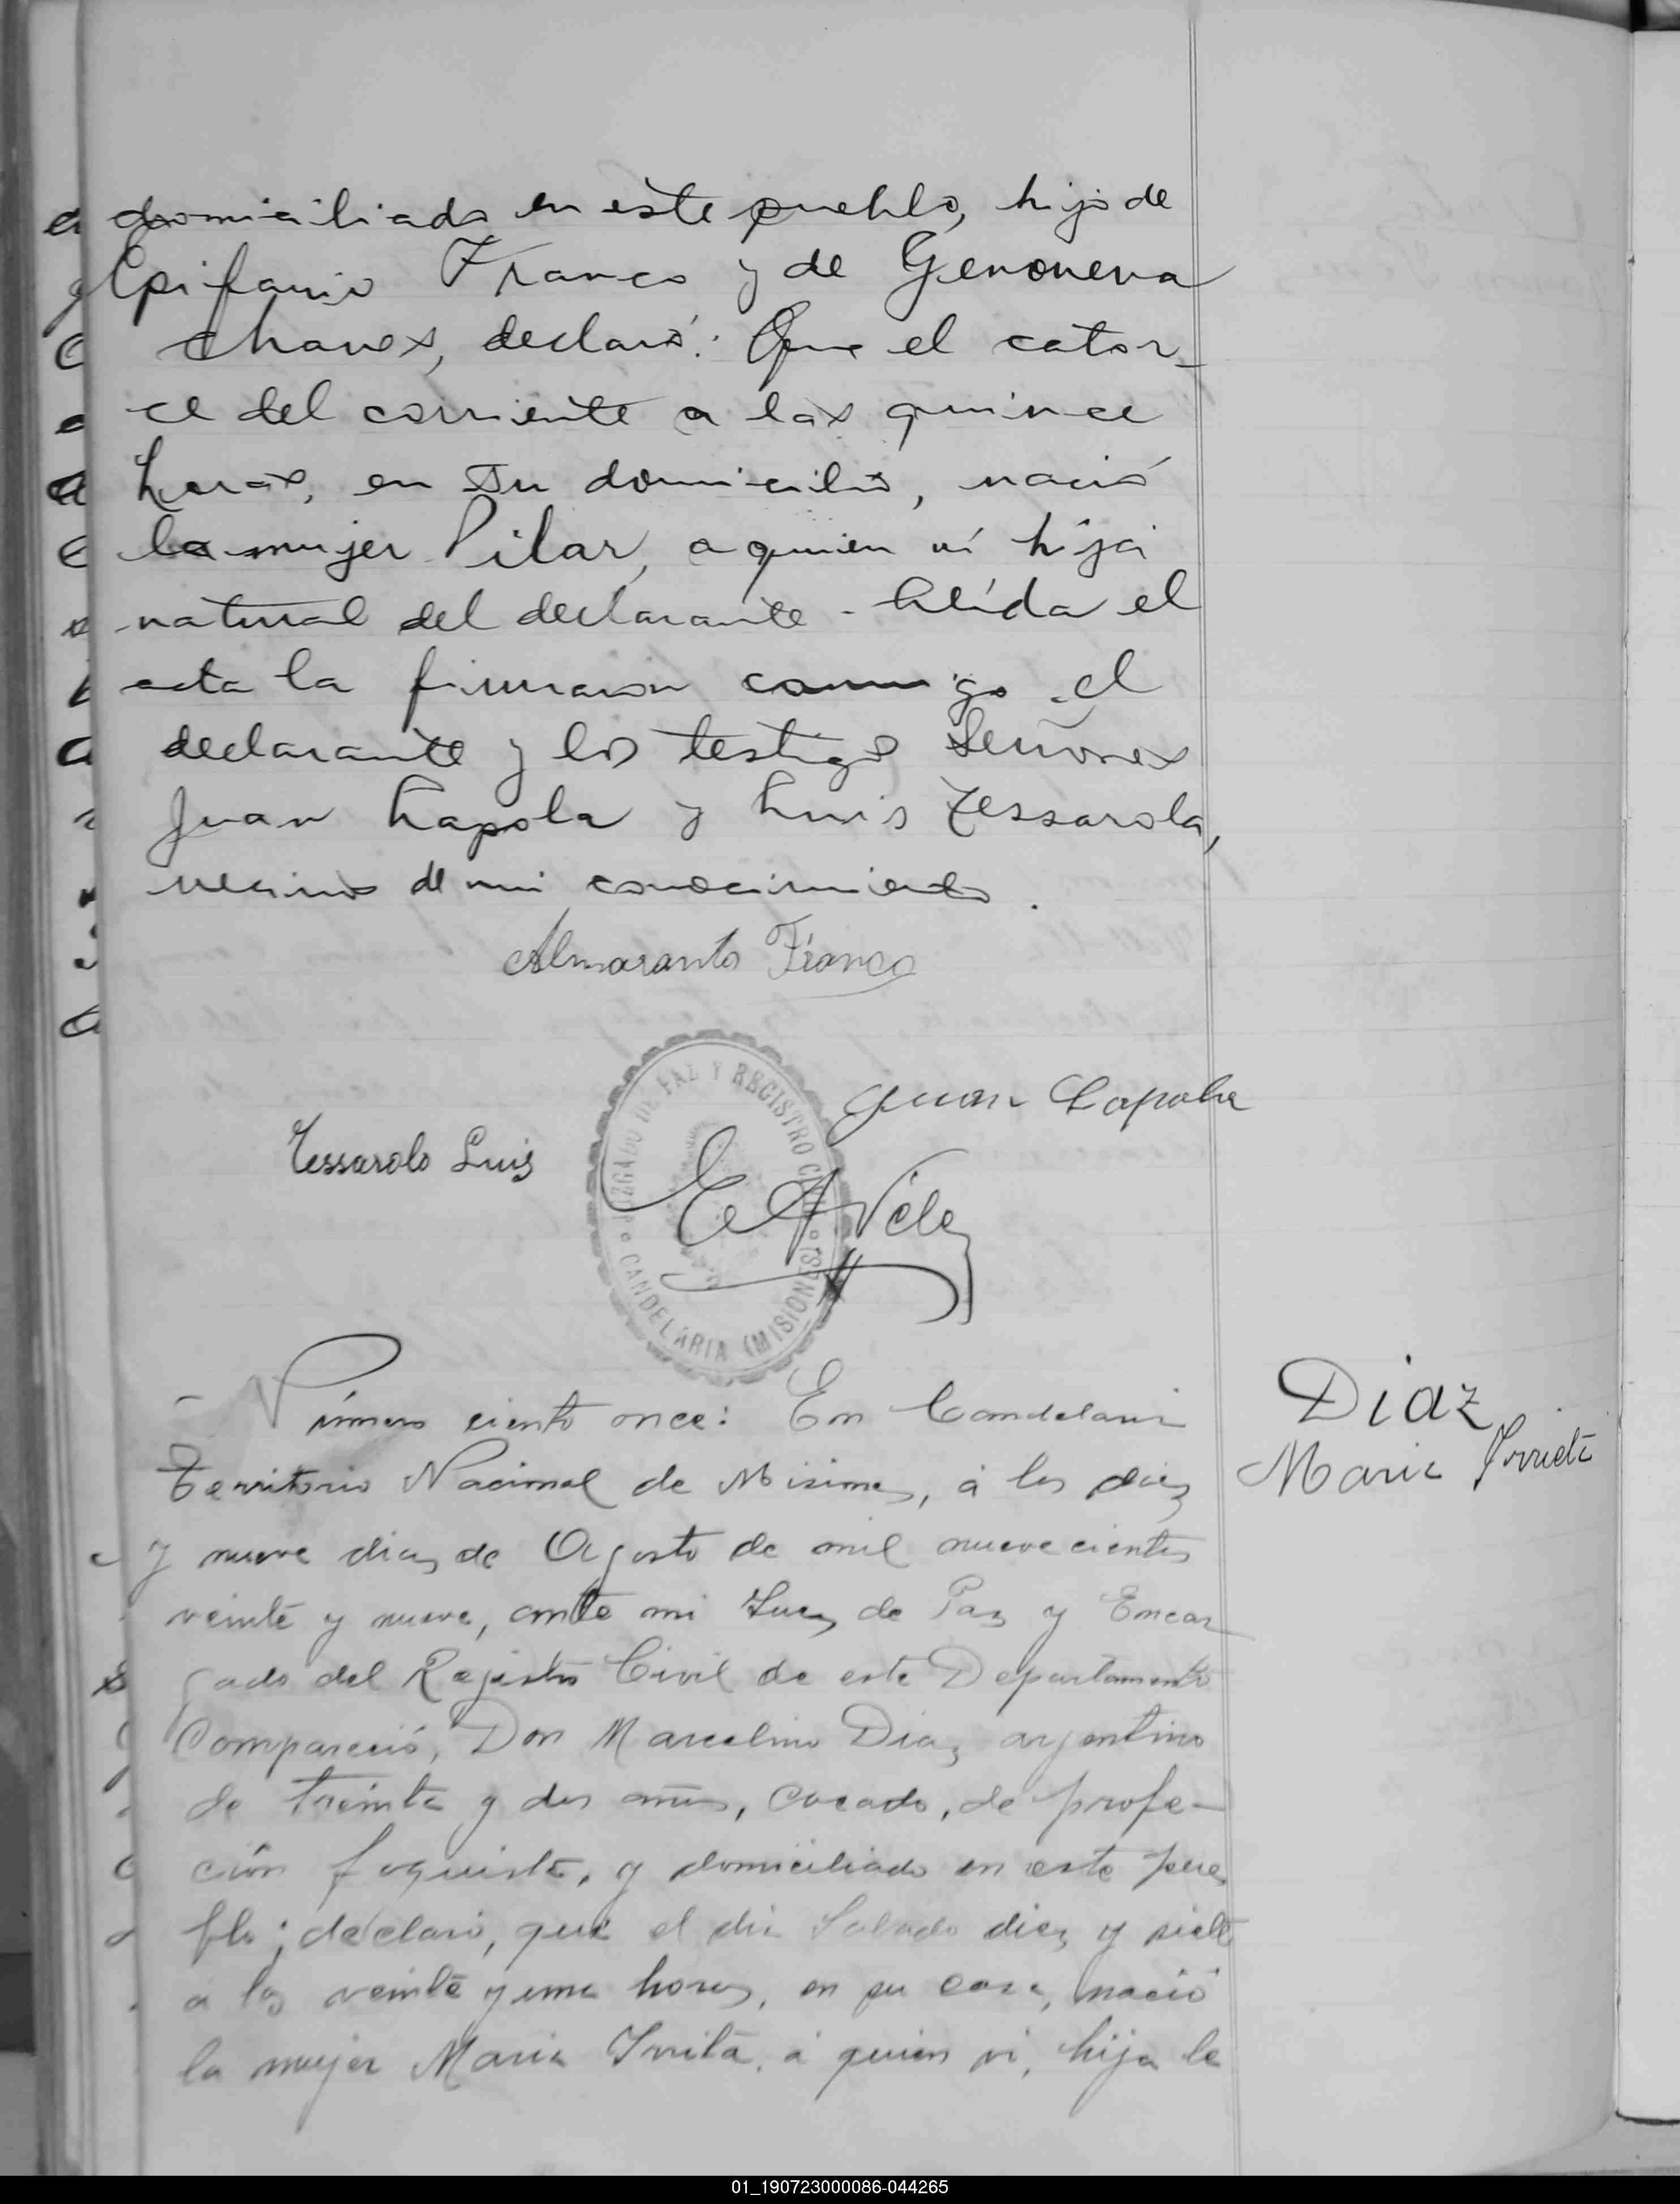 domiciliado en este pueblo, hijo de
Epifanio Franco y de Genoveva
Chavez, declaró: Que el cator_
ce del corriente a las quince
horas, en su domicilio, nació
la mujer Pilar, a quien ví hija
natural del declarante - Leída el
acta la firmaron conmigo el
declarante y los testigos Señores
Juan Lapola y Luis Tessarola,
vecinos de mi conocimiento.
Almaranto Franco
Juan Capola
Tessarolo Luis
JUZGADO DE PAZ Y REGISTRO CIVIL
CANDELARIA (MISIONES)
E A Velez
Número ciento once: En Candelaria
Diaz
Territorio Nacional de Misiones, á los diez
Maria Irrieta
y nueve dias de Agosto de mil nuevecientos
veinte y nueve, ante mi Juez de Paz y Encar
gado del Rejistro Civil de este Departamento
Compareció, Don Marcelino Diaz, arjentino
de treinta y dos años, casado, de profe-
ción foguista, y domiciliado en este pue
blo; declaró, que el dia Sabado diez y siete
a las veinte y una horas, en su casa, nació
la mujer Maria Irrita, á quien vi, hija le
01_190723000086-044265